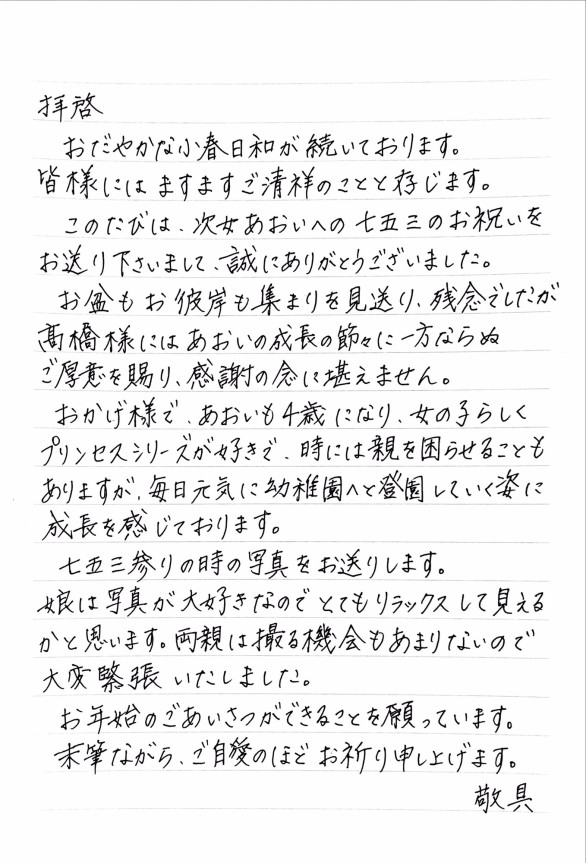 拝啓
おだやかな小春日和が続いております。
皆様にはますますご清祥のことと存じます。
このたびは、次女あおいへの七五三のお祝いを
お送り下さいまして、誠にありがとうございました。
お盆もお彼岸も集まりを見送り、残念でしたが
髙橋様にはあおいの成長の節々に一方ならぬ
ご厚意を賜り、感謝の念に堪えません。
おかげ様で、あおいも4歳になり、女の子らしく
プリンセスシリーズが好きで、時には親を困らせることも
ありますが、毎日元気に幼稚園へと登園していく姿に
成長を感じております。
七五三参りの時の写真をお送りします。
娘は写真が大好きなのでとてもリラックスして見える
かと思います。両親は撮る機会もあまりないので
大変緊張いたしました。
お年始のごあいさつができることを願っています。
末筆ながら、ご自愛のほどお祈り申し上げます。
敬具